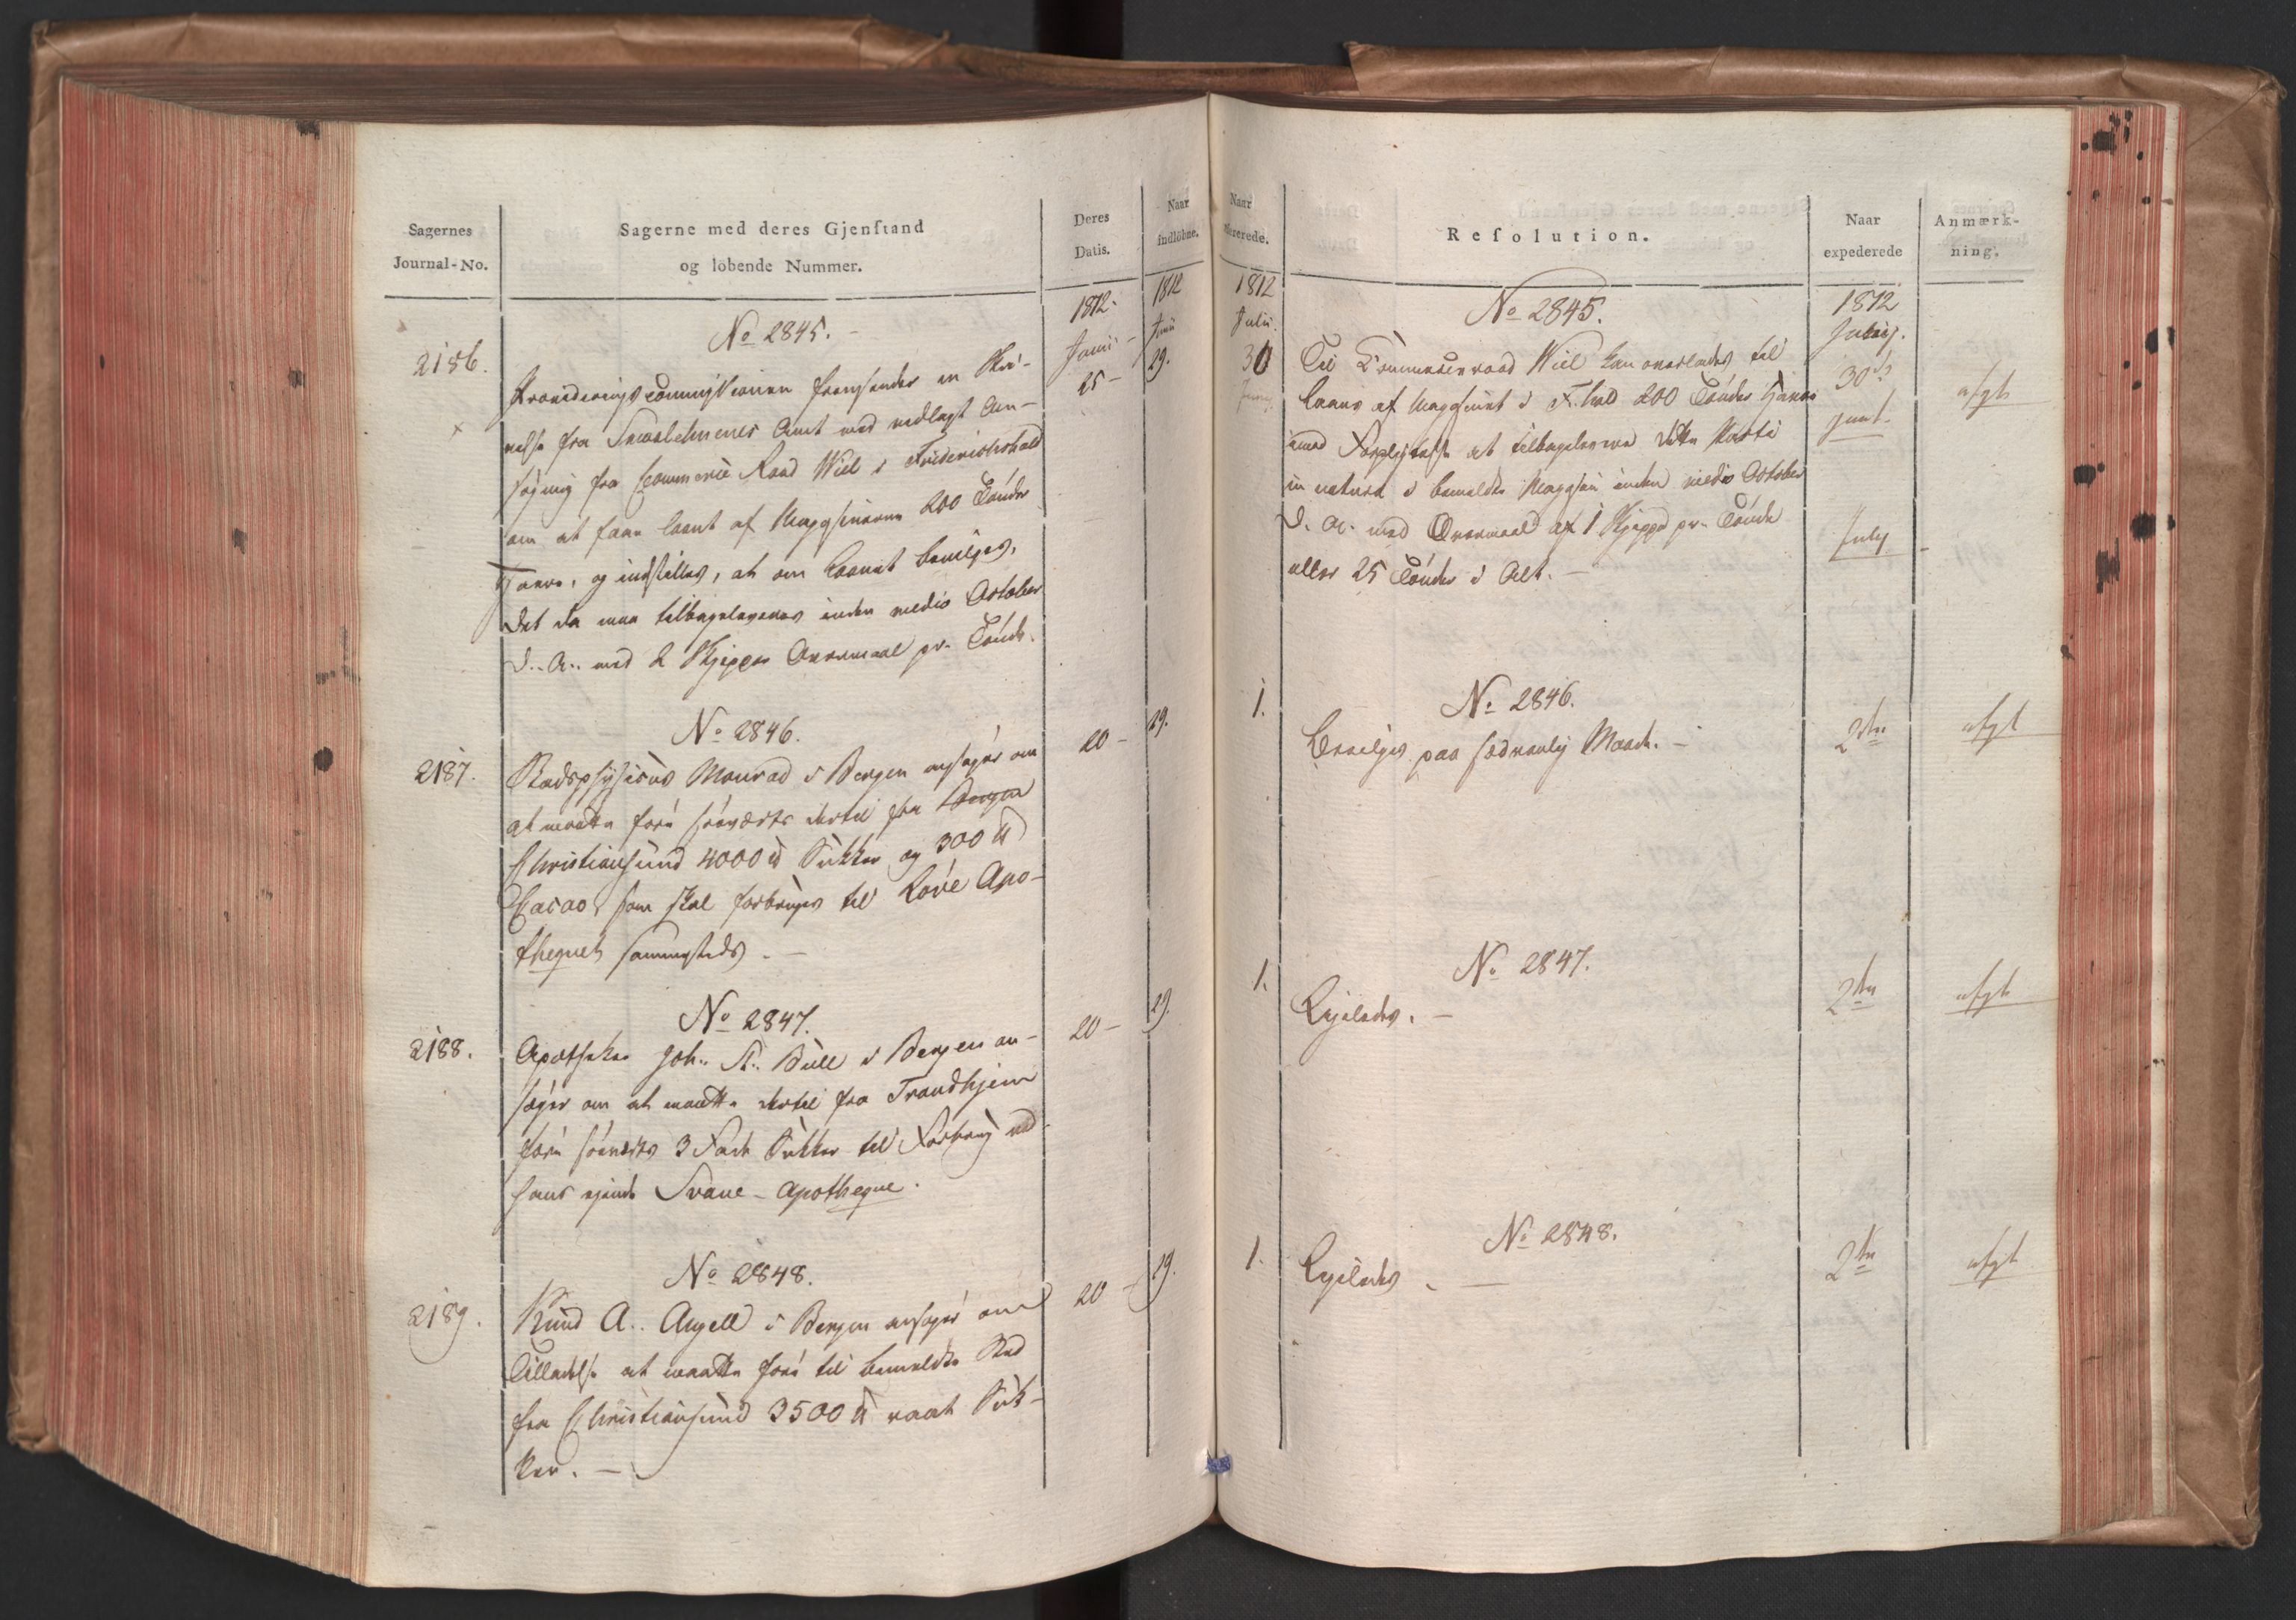 Sagernes
Journal-No.
Sagerne med deres Gjenstand
og løbende Nummer.
Deres
Datis.
Naar
indløbne.
1812.
1812
No 2845.
Junii
Junii
2186.
25
29.
Provideringscommissionen fremsender en Skri-
velse fra Smaalehnenes Amt med vedlagt An-
søgning fra Commerce Raad Wiel i Friderichshald
om at faae laant af Magazinerne 200 Tønder
Havre, og indstilles, at om Laanet bevilges,
det da maa tilbageleveres inden medio October
d. A. med 2 Skjepper Overmaal pr. Tønde.
No 2846.
2187.
Stadsphysicus Monrad i Bergen ansøger om
20
29.
at maatte føre søeværts dertil fra Bergen
Christiansund 4000 ℔ Sukker og 300 ℔
Cacao, som skal forbruges til Løve Apo-
thequet sammesteds.
No 2847.
2188.
Apotheker Joh. St. Bull i Bergen an-
20
29.
søger om at maatte dertil fra Trondhjem
føre søeværts 3 Fade Sukker til Forbrug ved
hans eiende Svane-Apotheque.
No 2848.
2189.
Knud A. Angell i Bergen ansøger om
20
29.
Tilladelse at maatte føre til bemeldte Sted
fra Christiansund 3500 ℔ raat Suk-
ker.
Naar
Resolution.
Naar
expederede
Anmærk-
ning.
1812
No 2845.
1812
Julii.
30
Til Commerceraad Wiel kan overlades til
30
afgt
Laans af Magazinet i F.hald 200 Tønder Havre
mod Forpligtelse at tilbagelevere dette Qvanti
in natura i bemeldte Magazin inden medio October
d. A. med Overmaal af 1 Skjeppe pr. Tønde
July
eller 25 Tønder i Alt.
No 2846.
1.
Bevilges paa sædvanlig Maade.
2den
afgt
No 2847.
1.
Ligeledes.
2den
afgt
No 2848.
1.
Ligeledes
2den
afgt